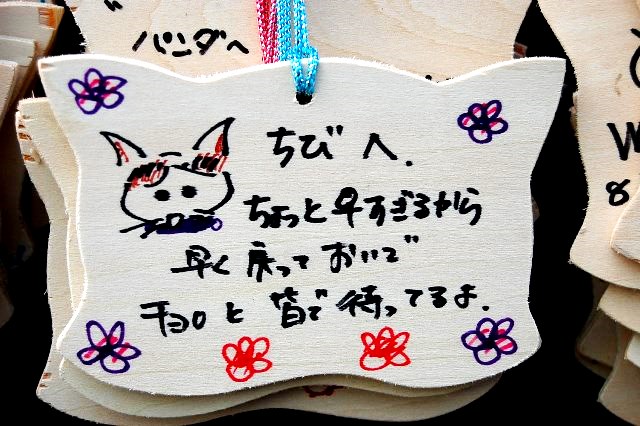 パンダへ
ちびへ.
ちょっと早すぎるから
早く戻っておいで
チョロと皆で待ってるよ.
W
8